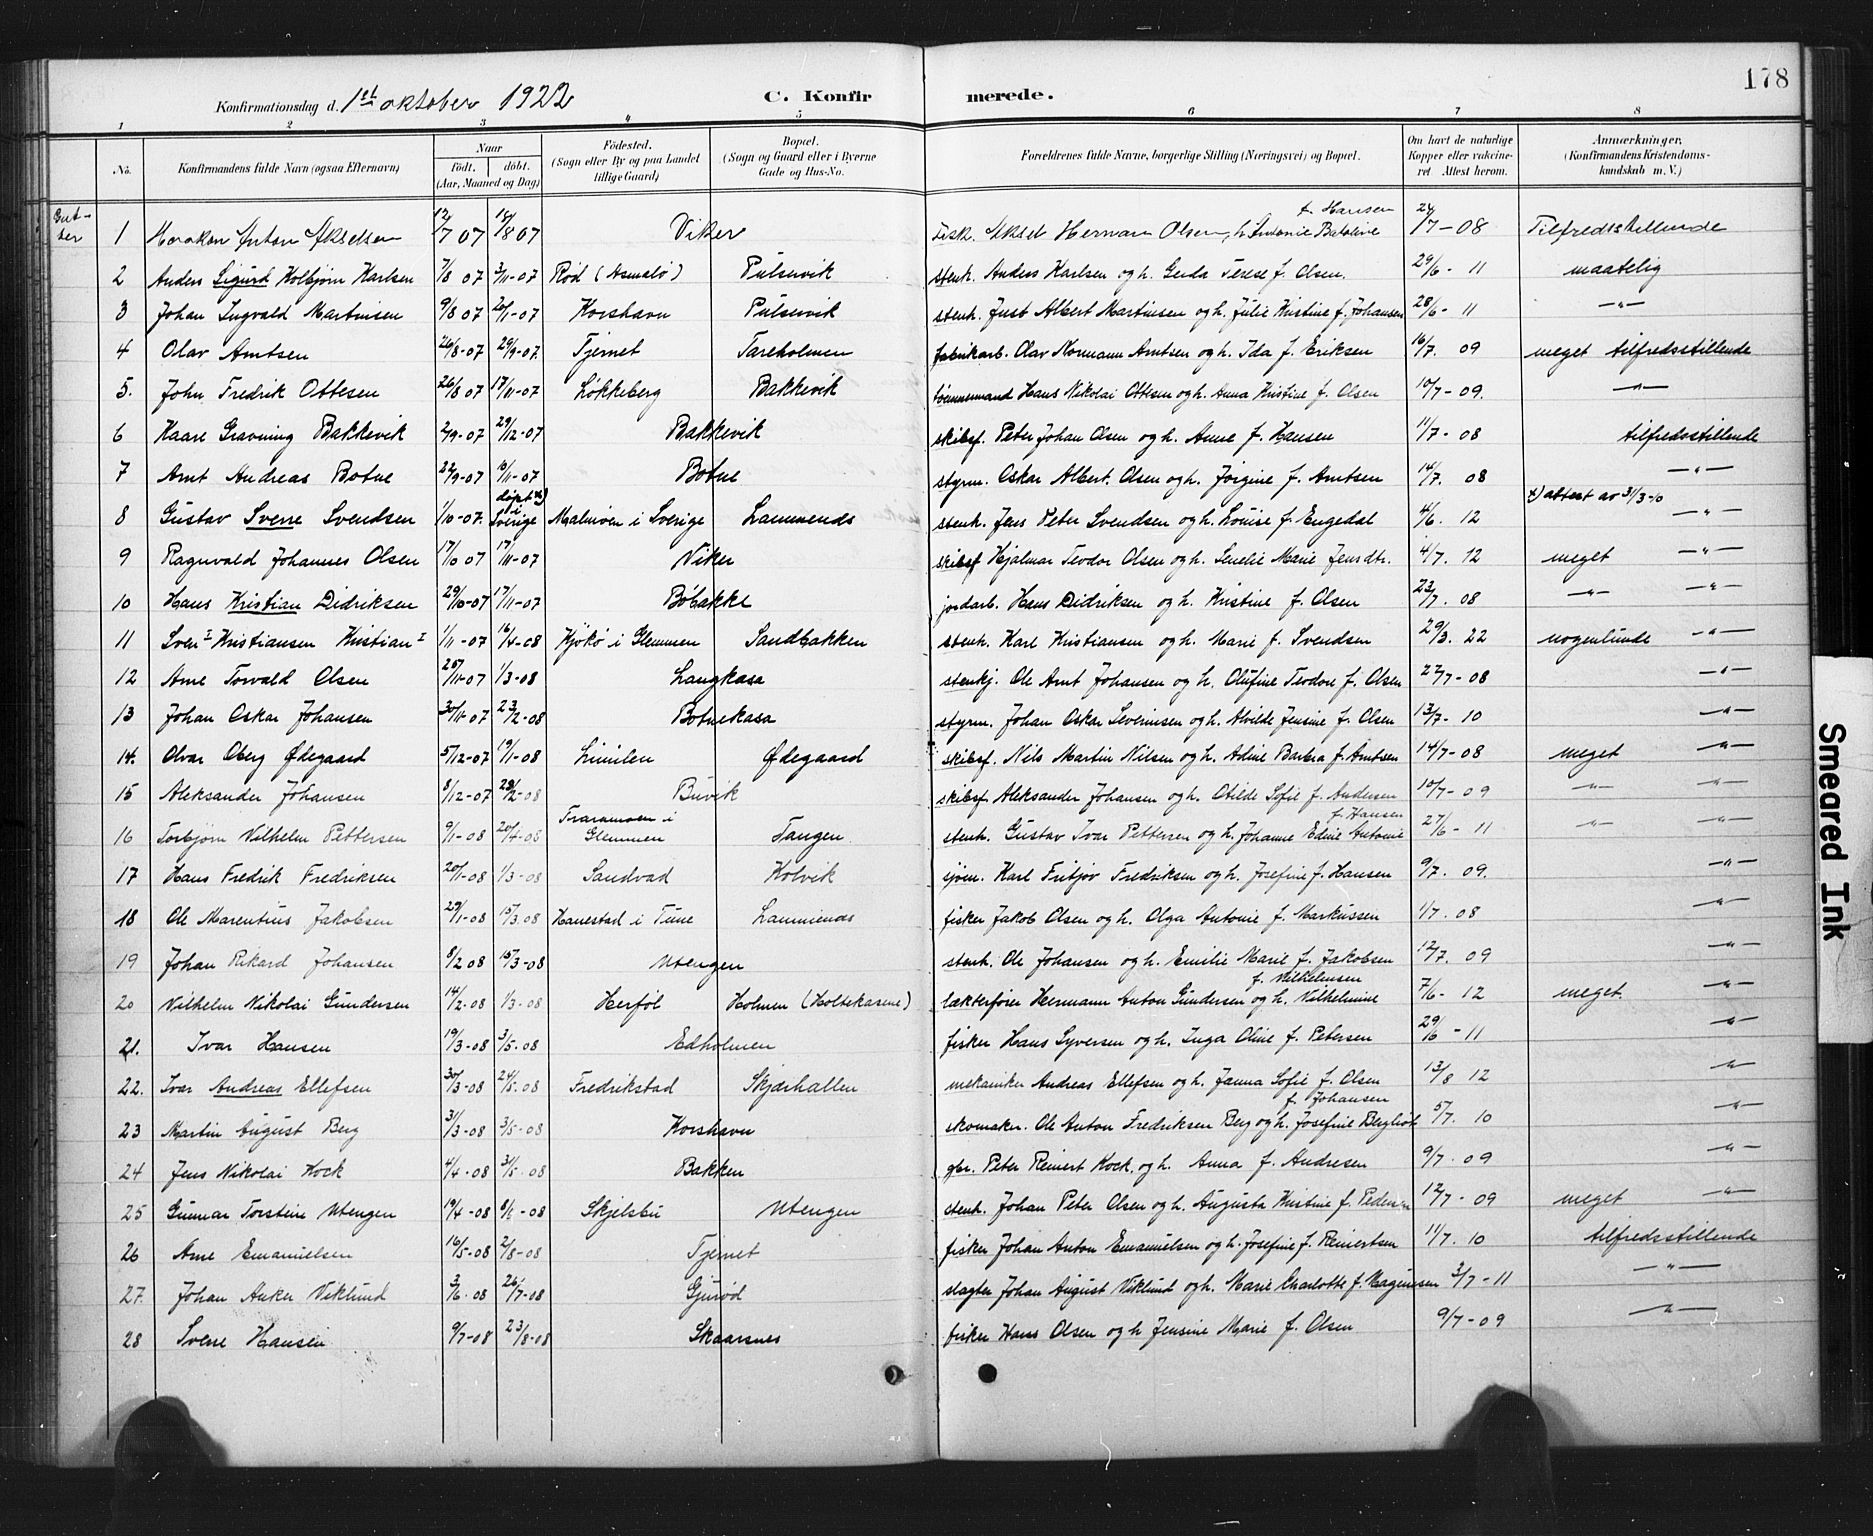 178
Konfirmationsdag d. 1st oktober 1922 C. Konfirmerede.
1 2 3 4 5 6 7 8
No. Konfirmandens fulde Navn (ogsaa Efternavn) Naar født. døbt. (Aar, Maaned og Dag) Fødested. (Sogn eller By og paa Landet tillige Gaard) Bopæl. (Sogn og Gaard eller i Byerne Gade og Hus-No. Forældrenes fulde Navne, borgerlige Stilling (Næringsvei) og Bopæl. Om havt de naturlige Kopper eller vaccineret Attest herom. Anmærkninger, (Konfirmandens Kristendomskundskab m. V.)
Gutter
1 Haakon Anton Akselsen 12/7 07 18/8 07 Viker fisk. Aksel Herman Olsen, h. Antonie Batoline f. Hansen 24/7 - 08 Tilfredsstillende
2 Anders Sigurd Kolbjørn Karlsen 7/8 07 3/11-07 Rød (Asmalø) Pulservik stenh. Anders Karlsen og h. Gerda Terese f. Olsen. 29/6 - 11 maatelig
3 Johan Ingvald Martinsen 9/8 07 20/1-07 Korshavn Pulservik stenh. Just Albert Martinsen og h. Julie Kristine f. Johansen 28/6 - 11 -"-
4 Olav Arntsen 26/8-07 29/9-07. Tjernet Tareholmen fabrikarb. Olav Normann Arntsen og h. Ida f. Eriksen 16/7. 09 meget tilfredsstillende
5. John Fredrik Ottesen 26/8 07 17/11-07 Løkkeberg Bakkevik tømmermand Hans Nikolai Ottesen og h. Anna Kristine f. Olsen 10/7-09. -"-
6 Kaare Gravning Bakkevik 2/9-07 29/12-07 Bakkevik skibsf. Peter Johan Olsen og h. Anne f. Hansen 11/7-08 tilfredsstillende
7 Arnt Andreas Botne 22/9-07 10/11-07 Botne styrm. Oskar Albert Olsen og h. Jørgine f. Arntsen 14/7. 08 -"-
8 Gustav Sverre Svendsen 1/10-07. døpt x) i Sverige Malmøen i Sverige Lammends stenh. Jens Peter Svendsen og h. Louise f. Engedal 4/6. 12 x) attest av 31/3-10 -"-
9 Ragnvald Johannes Olsen 17/10 07 17/11-07 Viker skibsf Hjalmar Teodor Olsen og h. Senelie Marie Jensdtr. 4/7. 12 meget -"-
10 Hans Kristian Didriksen 29/10-07 17/11-07 Bøbakke jordarb. Hans Didriksen og h. Kristine f. Olsen 23/7. 08 -"- -"-
11 Sven I Kristiansen Kristian I 1/11-07 16/4-08 Kjøkø i Glemmen Sandbakken stenh. Karl Kristiansen og h. Marie f. Svendsen 29/3. 22 nogenlunde -"-
12 Arne Torvald Olsen 25/11-07 1/3-08 Langkasa stenkj. Ole Arnt Johansen og h. Olufine Teodore f. Olsen 27/7-08 -"-
13 Johan Oskar Johansen 30/11-07 23/2-08 Botnekasa styrm. Johan Oskar Severinsen og h. Alvilde Jensine f. Olsen 13/7-10 -"-
14. Alvar Oberg Ødegaard 5/12-07 19/1-08 Limilen Ødegaard skibsf. Nils Martin Nilsen og h. Adine Barbra f. Arntsen 14/7-08 meget -"-
15 Aleksander Johansen 8/12-07 23/2-08 Buvik skibsf. Aleksander Johansen og h. Otilde Sofie f. Andersen 10/7-09 -"- -"-
16 Torbjørn Vilhelm Pettersen 9/1-08 20/4-08 Traramoen i Glemmen Tangen stenh. Gustav Ivar Pettersen og h. Johanne Edine Antonie f. Hansen 27/6-11 -"- -"-
17 Hans Fredrik Fredriksen 20/1-08 1/3-08 Sandvad Kølvik sjøm. Karl Fritjov Fredriksen og h. Josefine f. Hansen 9/7. 09. -"-
18 Ole Marentius Jakobsen 29/1-08 15/3.08 Hanestad i Tune Lammends fisker Jakob Olsen og h. Olga Antonie f. Markussen 1/7. 08 -"-
19 Johan Rikard Johansen 8/2 08 15/3-08 Utengen stenh. Ole Johansen og h. Emilie Marie f. Jakobsen 12/7. 09 -"-
20 Vilhelm Nikolai Gundersen 14/2-08 1/3-08 Herføl Holmen (Holtekasene) lækterfører Hermann Anton Gundersen og h. Vilhelmine f. Vilhelmsen 7/6-12 meget. -"-
21. Ivar Hansen 19/3-08 3/5.08 Edholmen fisker Hans Syversen og h. Inga Oline f. Petersen 29/6-11 -"-
22. Ivar Andreas Ellefsen 30/3-08 24/5.08 Fredrikstad Skjærhallen mekaniker Andreas Ellefsen og h. Janna Sofie f. Olsen 13/8 12 -"-
23 Martin August Berg 31/3-08 3/5-08 Korshavn skomaker. Ole Anton Fredriksen Berg og h. Josefine Bergliot f. Johansen 5/7. 10 -"-
24 Jens Nikolai Kock 4/4-08 31/5.08 Bakken gbr. Peter Reinert Kock. og h. Anna f. Andresen 9/7.09 -"-
25 Gunnar Torstein Utengen 19/4-08 8/6-08 Skjelsbu Utengen stenh. Johan Peter Olsen og h. Augusta Kristine f. Pedersen 12/7-09 meget -"-
26 Arne Emanuelsen 16/5-08 2/8-08 Tjernet fisker Johan Anton Emanuelsen og h. Josefine f. Reinertsen 11/7. 10 tilfredsstillende
27. Johan Anker Viklund 3/6.08 26/7-08 Gjurød slagter Johan August Viklund og h. Marie Charlotte f. Magnussen 3/7-11 -"-
28 Sverre Hansen 9/7-08 23/8-08 Skaarsnes fisker Hans Olsen og h Jensine Marie f. Olsen 9/7-09 -"-
Smeared Ink